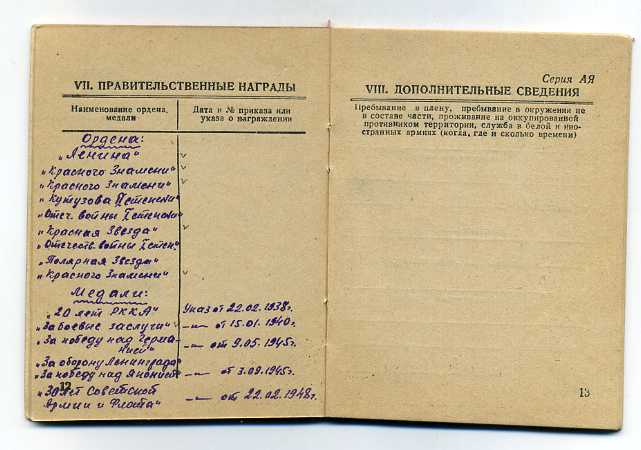 VII. ПРАВИТЕЛЬСТВЕННЫЕ НАГРАДЫ
Наименование ордена, медали
Дата и № приказа или указа о награждении
Ордена:
„Ленина“
„Красного Знамени“
„Красного Знамени“
„Кутузова II степени“
„Отеч. войны I степени“
„Красная Звезда“
„Отечеств. войны I степ.“
„Полярная Звезда“
„Красного Знамени“
Медали:
„20 лет РККА“ Указ от 22.02.1938г.
„За боевые заслуги“ –„– от 15.01.1940г.
„За победу над Герма-
нией“ –„– от 9.05.1945г.
„За оборону Ленинграда“
„За победу над Японией“ –„– от 3.09.1945г.
„30 лет Советской
Армии и Флота“ –„– от 22.02.1948г.
12
Серия АЯ
VIII. ДОПОЛНИТЕЛЬНЫЕ СВЕДЕНИЯ
Пребывание в плену, пребывание в окружении не
в составе части, проживание на оккупированной
противником территории, служба в белой и ино-
странных армиях (когда, где и сколько времени)
13